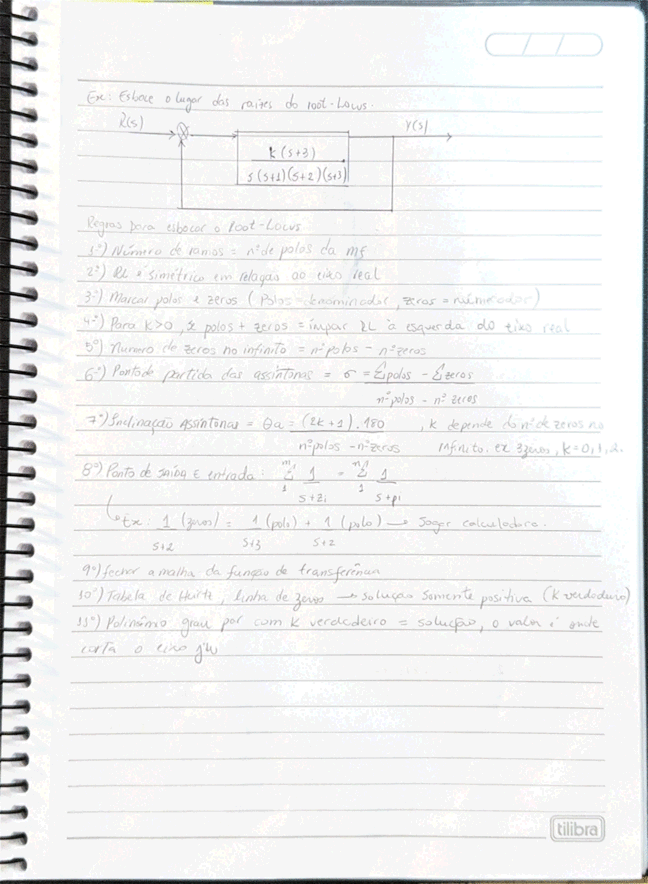 Ex: Esboce o lugar das raízes do root-Locus.
R(s) Y(s)
k(s+3)
s(s+1)(s+2)(s+3)
Regras para esboçar o Root-Locus
1º) Número de ramos = nº de polos da mf
2º) RL é simétrico em relação ao eixo real
3º) Marcar polos e zeros (Polos = denominador, zeros = numerador)
4º) Para k>0, se polos + zeros = ímpar RL à esquerda do eixo real
5º) Numero de zeros no infinito = nº polos - nº zeros
6º) Ponto de partida das assíntonas = σ = Σpolos - Σzeros
nº polos - nº zeros
7º) Inclinação Assíntonas = θa = (2k+1).180 , k depende do nº de zeros no
nº polos - nº zeros infinito. ex 3 zeros, k=0,1,2.
8º) Ponto de saída E entrada: Σ 1 = Σ 1
1 s+zi 1 s+pi
Ex: 1 (zeros) = 1 (polo) + 1 (polo) → Jogar calculadora.
s+2 s+3 s+2
9º) fechar a malha da função de transferência
10º) Tabela de Hurtz, linha de zeros → solução somente positiva (k verdadeiro)
11º) Polinômio grau par com k verdadeiro = solução, o valor é onde
corta o eixo jw
tilibra